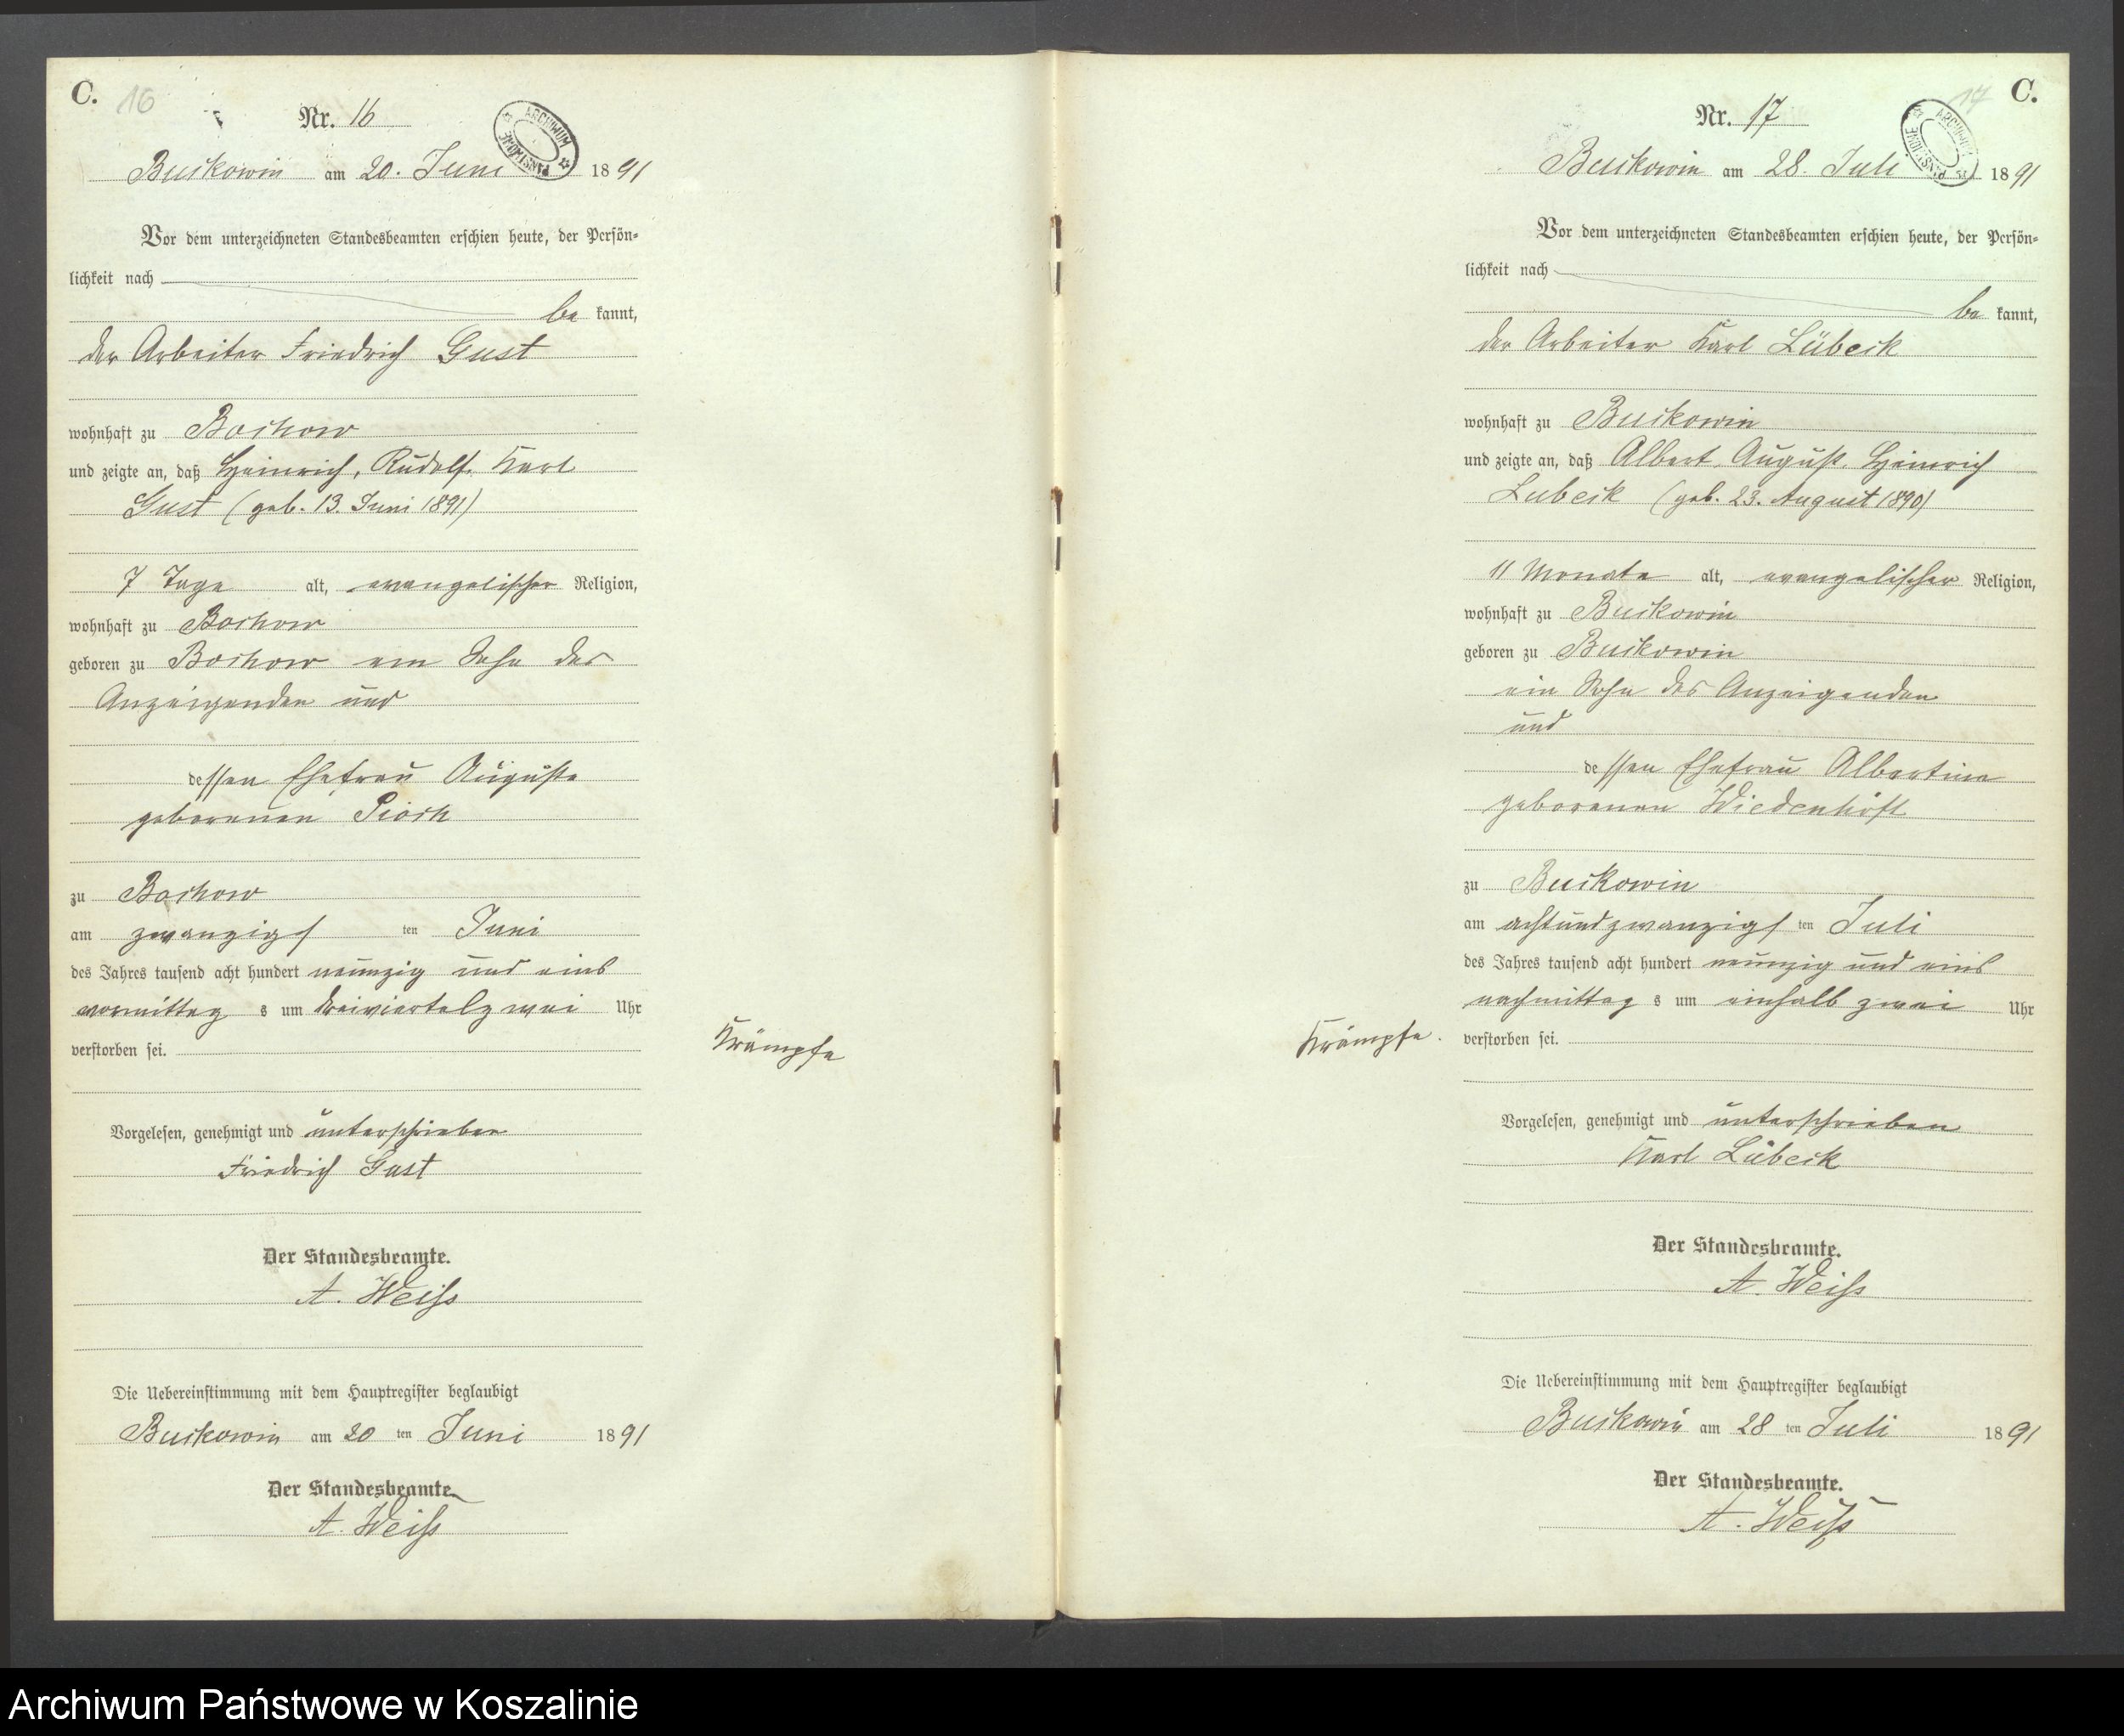 C. 16
Nr. 16
ARCHIWUM PAŃSTWOWE
Buckowin am 20. Juni 1891
Vor dem unterzeichneten Standesbeamten erschien heute, der Persön-
lichkeit nach
be kannt,
der Arbeiter Friedrich Gust
wohnhaft zu Bochow
und zeigte an, daß Heinrich, Rudolf, Karl
Gust (geb. 13. Juni 1891)
7 Tage alt, evangelischer Religion,
wohnhaft zu Bochow
geboren zu Bochow ein Sohn des
Anzeigenden und
dessen Ehefrau Auguste
geborenen Piock
zu Bochow
am zwanzigsten Juni
des Jahres tausend acht hundert neunzig und eins
vormittags um dreiviertelzwei Uhr
verstorben sei.
Krämpfe
Vorgelesen, genehmigt und unterschrieben
Friedrich Gust
Der Standesbeamte.
A. Weiss
Die Uebereinstimmung mit dem Hauptregister beglaubigt
Buckowin am 20 ten Juni 1891
Der Standesbeamte.
A. Weiss
17 C.
Nr. 17
ARCHIWUM PAŃSTWOWE
Buckowin am 28. Juli 1891
Vor dem unterzeichneten Standesbeamten erschien heute, der Persön-
lichkeit nach
be kannt,
der Arbeiter Karl Lübeck
wohnhaft zu Buckowin
und zeigte an, daß Albert, August, Heinrich
Lubeck (geb. 23. August 1890)
11 Monate alt, evangelischer Religion,
wohnhaft zu Buckowin
geboren zu Buckowin
ein Sohn des Anzeigenden
und
dessen Ehefrau Albertine
geborenen Wiedenhöft
zu Buckowin
am achtundzwanzigsten Juli
des Jahres tausend acht hundert neunzig und eins
nachmittags um einhalb zwei Uhr
Krämpfe. verstorben sei.
Vorgelesen, genehmigt und unterschrieben
Karl Lübeck
Der Standesbeamte.
A. Weiss
Die Uebereinstimmung mit dem Hauptregister beglaubigt
Buckowin am 28 ten Juli 1891
Der Standesbeamte.
A. Weiss
Archiwum Państwowe w Koszalinie